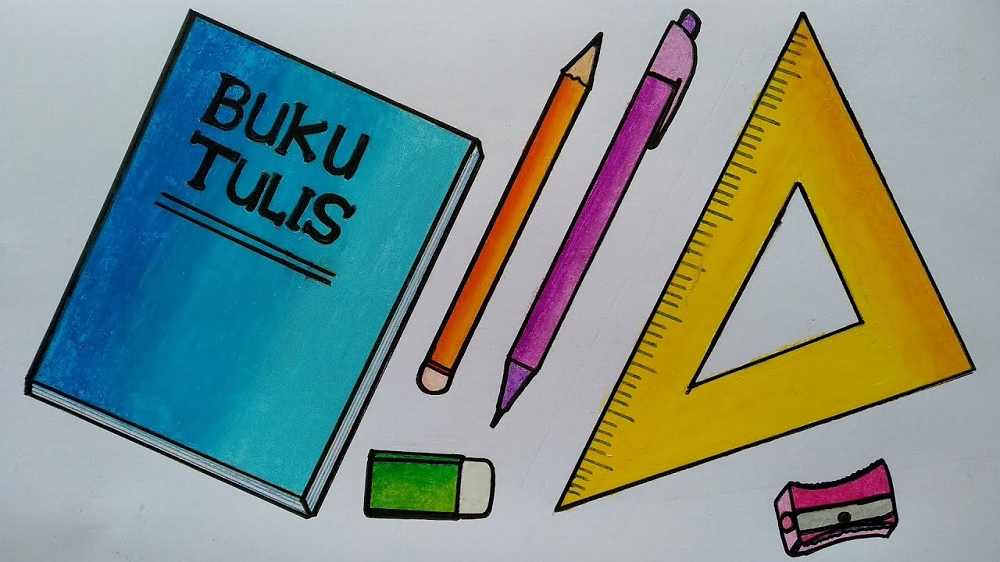 BUKU
TULIS